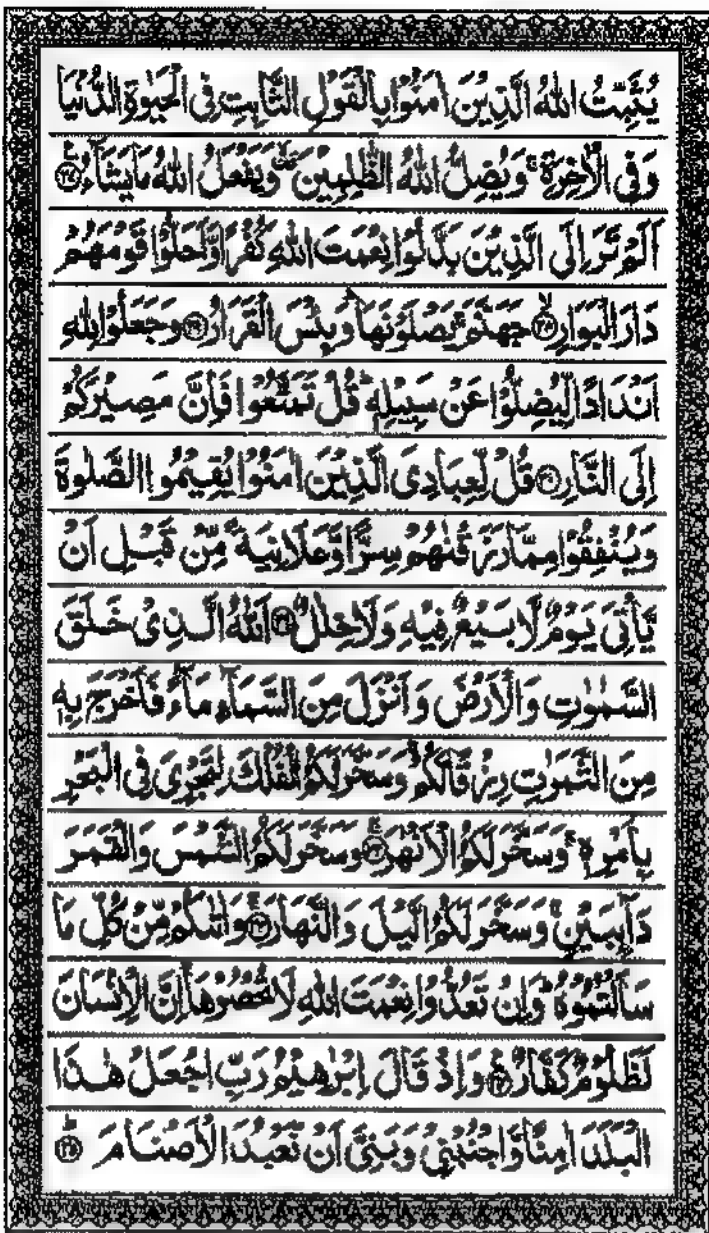 يُثَبِّتُ اللهُ الَّذِيْنَ اٰمَنُوْا بِالْقَوْلِ الثَّابِتِ فِى الْحَيٰوةِ الدُّنْيَا
وَفِى الْاٰخِرَةِ ۚ وَيُضِلُّ اللهُ الظّٰلِمِيْنَ ۙ وَيَفْعَلُ اللهُ مَا يَشَآءُ ۝۲۷
اَلَمْ تَرَ اِلَى الَّذِيْنَ بَدَّلُوْا نِعْمَتَ اللهِ كُفْرًا وَّاَحَلُّوْا قَوْمَهُمْ
دَارَ الْبَوَارِ ۝۲۸ جَهَنَّمَ ۚ يَصْلَوْنَهَا ؕ وَبِئْسَ الْقَرَارُ ۝۲۹ وَجَعَلُوْا لِلّٰهِ
اَنْدَادًا لِّيُضِلُّوْا عَنْ سَبِيْلِهٖ ؕ قُلْ تَمَتَّعُوْا فَاِنَّ مَصِيْرَكُمْ
اِلَى النَّارِ ۝۳۰ قُلْ لِّعِبَادِىَ الَّذِيْنَ اٰمَنُوْا يُقِيْمُوا الصَّلٰوةَ
وَيُنْفِقُوْا مِمَّا رَزَقْنٰهُمْ سِرًّا وَّعَلَانِيَةً مِّنْ قَبْلِ اَنْ
يَّاْتِىَ يَوْمٌ لَّا بَيْعٌ فِيْهِ وَلَا خِلٰلٌ ۝۳۱ اَللهُ الَّذِىْ خَلَقَ
السَّمٰوٰتِ وَالْاَرْضَ وَاَنْزَلَ مِنَ السَّمَآءِ مَآءً فَاَخْرَجَ بِهٖ
مِنَ الثَّمَرٰتِ رِزْقًا لَّكُمْ ۚ وَسَخَّرَ لَكُمُ الْفُلْكَ لِتَجْرِىَ فِى الْبَحْرِ
بِاَمْرِهٖ ۚ وَسَخَّرَ لَكُمُ الْاَنْهٰرَ ۝۳۲ وَسَخَّرَ لَكُمُ الشَّمْسَ وَالْقَمَرَ
دَآئِبَيْنِ ۚ وَسَخَّرَ لَكُمُ الَّيْلَ وَالنَّهَارَ ۝۳۳ وَاٰتٰىكُمْ مِّنْ كُلِّ مَا
سَاَلْتُمُوْهُ ؕ وَاِنْ تَعُدُّوْا نِعْمَتَ اللهِ لَا تُحْصُوْهَا ؕ اِنَّ الْاِنْسَانَ
لَظَلُوْمٌ كَفَّارٌ ۝۳۴ وَاِذْ قَالَ اِبْرٰهِيْمُ رَبِّ اجْعَلْ هٰذَا
الْبَلَدَ اٰمِنًا وَّاجْنُبْنِىْ وَبَنِىَّ اَنْ نَّعْبُدَ الْاَصْنَامَ ؕ ۝۳۵